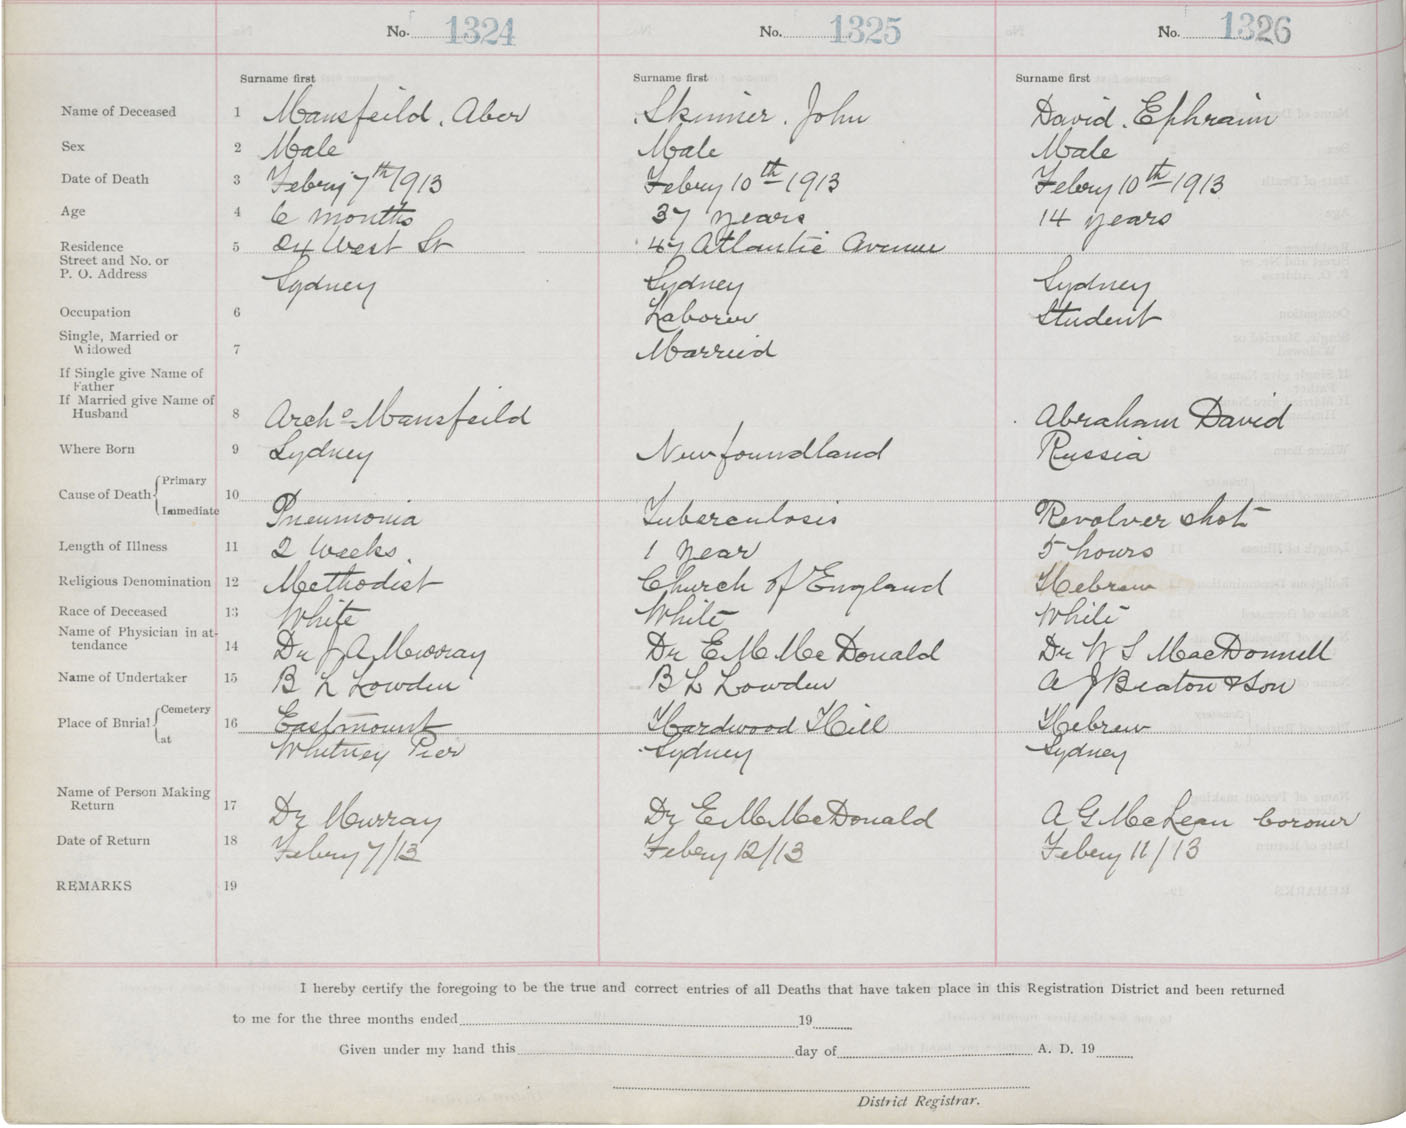 No. 1324 No. 1325 No. 1326
Surname first Surname first Surname first
Name of Deceased 1 Mansfeild, Aber Skinner, John David, Ephraim
Sex 2 Male Male Male
Date of Death 3 Febry 7th 1913 Febry 10th 1913 Febry 10th 1913
Age 4 6 months 37 years 14 years
Residence 5 24 West St 47 Atlantic Avenue
Street and No. or
P. O. Address Sydney Sydney Sydney
Occupation 6 Laborer Student
Single, Married or
Widowed 7 Married
If Single give Name of
Father
If Married give Name of
Husband 8 Archd Mansfeild Abraham David
Where Born 9 Sydney Newfoundland Russia
Cause of Death Primary 10
Immediate Pneumonia Tuberculosis Revolver shot
Length of Illness 11 2 weeks 1 year 5 hours
Religious Denomination 12 Methodist Church of England Hebrew
Race of Deceased 13 White White White
Name of Physician in at-
tendance 14 Dr J A Murray Dr E M McDonald Dr W S MacDonnell
Name of Undertaker 15 B L Lowden B L Lowden A J Beaton & Son
Place of Burial Cemetery 16 Eastmount Hardwood Hill Hebrew
at Whitney Pier Sydney Sydney
Name of Person Making
Return 17 Dr Murray Dr E M McDonald A G McLean Coroner
Date of Return 18 Febry 7/13 Febry 12/13 Febry 11/13
REMARKS 19
I hereby certify the foregoing to be the true and correct entries of all Deaths that have taken place in this Registration District and been returned
to me for the three months ended 19
Given under my hand this day of A. D. 19
District Registrar.